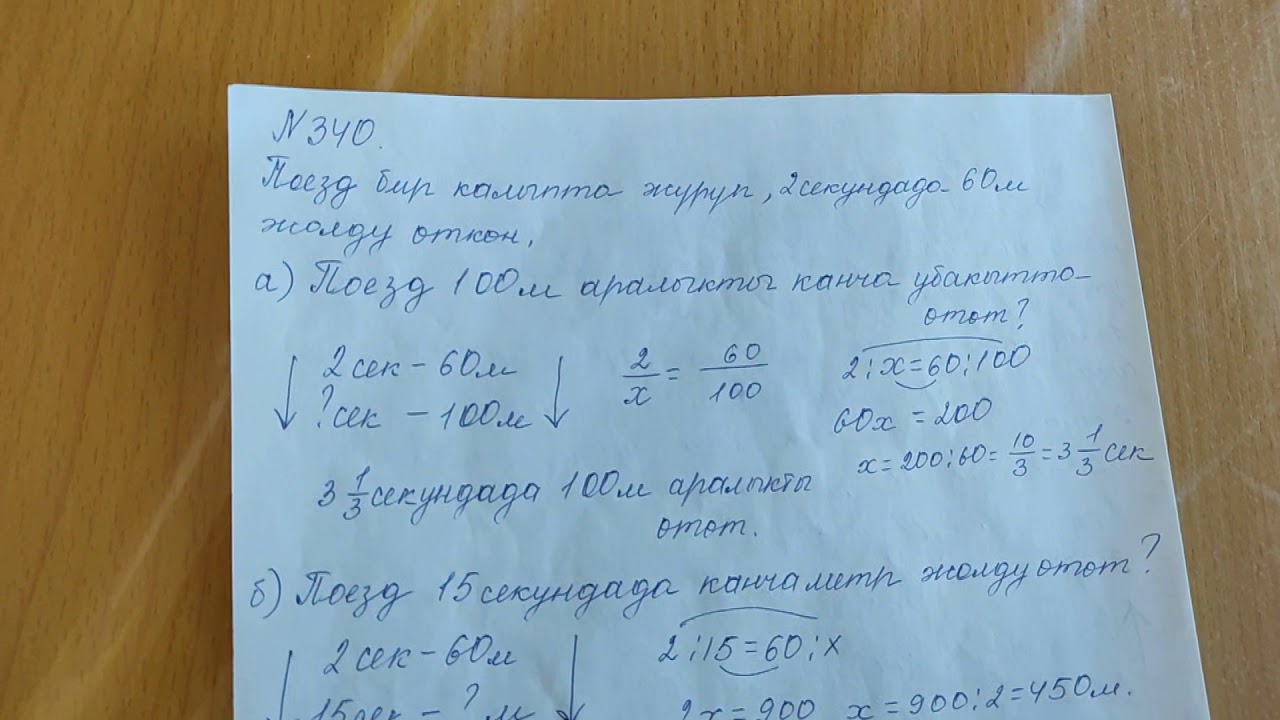 N340.
Поезд бир калыпта журуп, 2секундада 60м
жолду откон.
а) Поезд 100м аралыкты канча убакытта
отот?
2сек – 60м
?сек – 100м
2/x = 60/100
2:x=60:100
60x = 200
x=200:60=10/3=3 1/3 сек
3 1/3 секундада 100м аралыкты
отот.
б) Поезд 15секундада канча метр жолду отот?
2сек – 60м
15сек – ? м
2:15=60:x
2x=900 x=900:2=450м.